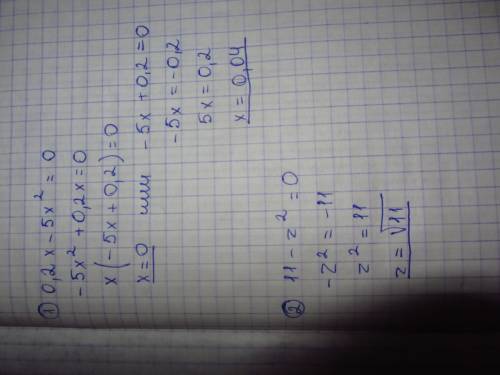 ① 0,2x - 5x² = 0
-5x² + 0,2x = 0
x(-5x + 0,2) = 0
x = 0 или -5x + 0,2 = 0
-5x = -0,2
5x = 0,2
x = 0,04
② 11 - z² = 0
-z² = -11
z² = 11
z = √11